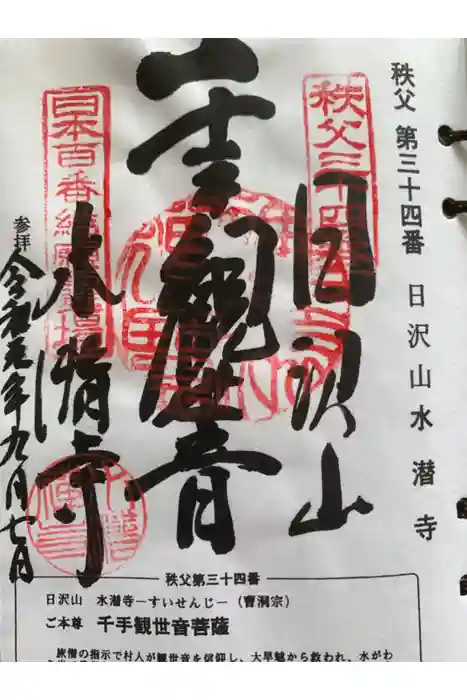 秩父 第三十四番 日沢山水潜寺
秩父三十四
日沢山
千手観世音
日本百番結願霊場
水潜寺
参拝
令和元年九月七日
秩父第三十四番
日沢山 水潜寺ーすいせんじー(曹洞宗)
ご本尊 千手観世音菩薩
旅僧の指示で村人が観世音を信仰し、大旱魃から救われ、水がわ